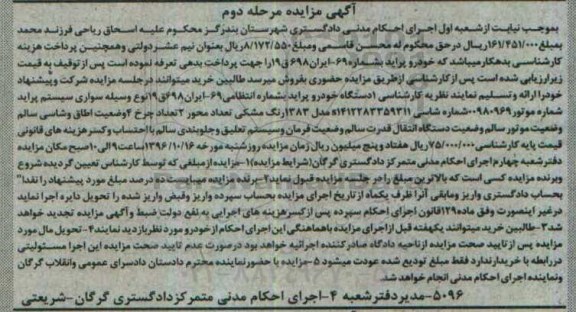 آگهی مزایده مرحله دوم
بموجب نیابت از شعبه اول اجرای احکام مدنی دادگستری شهرستان بندرگز محکوم علیه اسحاق ریاحی فرزند محمد
بمبلغ ۱۶۱/۴۵۱/۰۰۰ریال در حق محکوم له محسن قاسمی ومبلغ۸/۱۷۲/۵۵۰ریال بعنوان نیم عشردولتی وهمچنین پرداخت هزینه
کارشناسی بدهکارمیباشد که خودرو پراید بشماره۶۹-ایران۶۹۸ق۱۹را جهت پرداخت بدهی تعرفه نموده است پس از توقیف به قیمت
زیرارزیابی شده است پس از کارشناسی ازطریق مزایده حضوری بفروش میرسد طالبین خرید میتوانند در جلسه مزایده شرکت وپیشنهاد
خودرا ارائه وتسلیم نمایند نظریه کارشناسی ۱دستگاه خودرو پراید بشماره انتظامی۶۹-ایران۶۹۸ق۱۹نوع وسیله سواری سیستم پراید
شماره موتور۰۰۹۸۰۹۶۹شماره شاسی s۱۴۱۲۲۸۳۳۵۹۳۱۱مدل ۱۳۸۳رنگ مشکی تعداد محور ۲تعداد چرخ ۴وضعیت اطاق وشاسی سالم
وضعیت موتور سالم وضعیت دستگاه انتقال قدرت سالم وضعیت فرمان وسیستم تعلیق وجلوبندی سالم با احتساب وکسرهزینه های قانونی
قیمت پایه کارشناسی ۷۵/۰۰۰/۰۰۰ریال هفتاد وپنج میلیون ریال زمان مزایده روزشنبه مورخه ۱۳۹۶/۱۰/۱۶ساعت۹الی۱۰صبح مکان مزایده
دفترشعبه چهارم اجرای احکام مدنی متمرکز دادگستری گرگان(شرایط مزایده)۱-مزایده از مبلغی که توسط کارشناس تعیین گردیده شروع
وبرنده مزایده کسی است که بالاترین مبلغ را در جلسه مزایده قبول نماید۲-برنده مزایده میبایست ده درصد مبلغ مورد پیشنهاد را نقدا"
بحساب دادگستری واریز ومابقی آنرا ظرف یکماه از تاریخ اجرای مزایده بحساب سپرده واریز وفیش واریز شده را تحویل دایره اجرا نماید
درغیر اینصورت وفق ماده۱۲۹قانون اجرای احکام سپرده پس از کسرهزینه های اجرایی به نفع دولت ضبط وآگهی مزایده تجدید خواهد
شد۳-طالبین خرید میتوانند یکهفته قبل از اجرای مزایده باهماهنگی این اجرای احکام از خودرو مورد نظربازدید نمایند۴-تحویل مال مورد
مزایده پس از تایید صحت مزایده ازناحیه دادگاه صادرکننده اجرائیه خواهد بود درصورت عدم تایید صحت مزایده این اجرا مسئولیتی
دررابطه با خریدارندارد فقط مبلغ تودیع شده عودت میشود ۵-مزایده با حضورنماینده محترم دادستان دادسرای عمومی وانقلاب گرگان
ونماینده اجرای احکام مدنی انجام خواهد شد.
۵۰۹۶-مدیردفترشعبه ۴-اجرای احکام مدنی متمرکزدادگستری گرگان-شریعتی